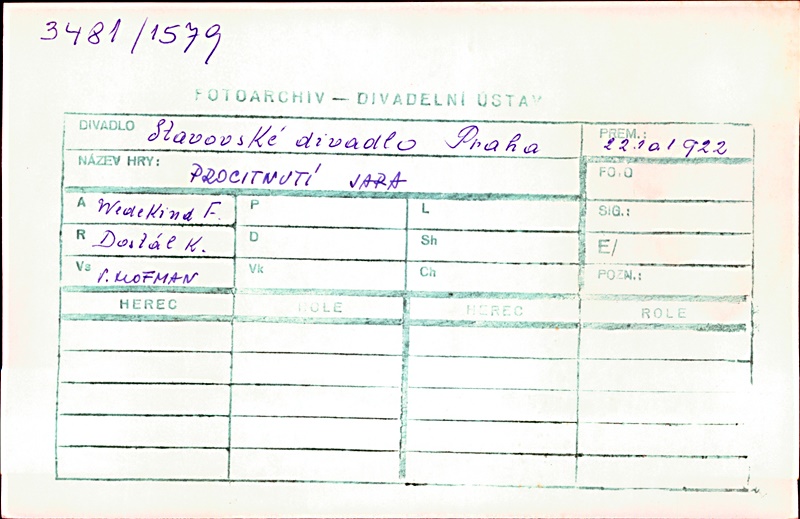 3481/1579
FOTOARCHIV — DIVADELNÍ ÚSTAV
DIVADLO Stavovské divadlo Praha
PREM.: 22.10.1922
NÁZEV HRY: PROCITNUTÍ JARA
FOTO
A Wedekind F. P L SIG.:
R Dostál K. D Sh E/
Vs V. HOFMAN Vk Ch POZN.:
HEREC ROLE HEREC ROLE